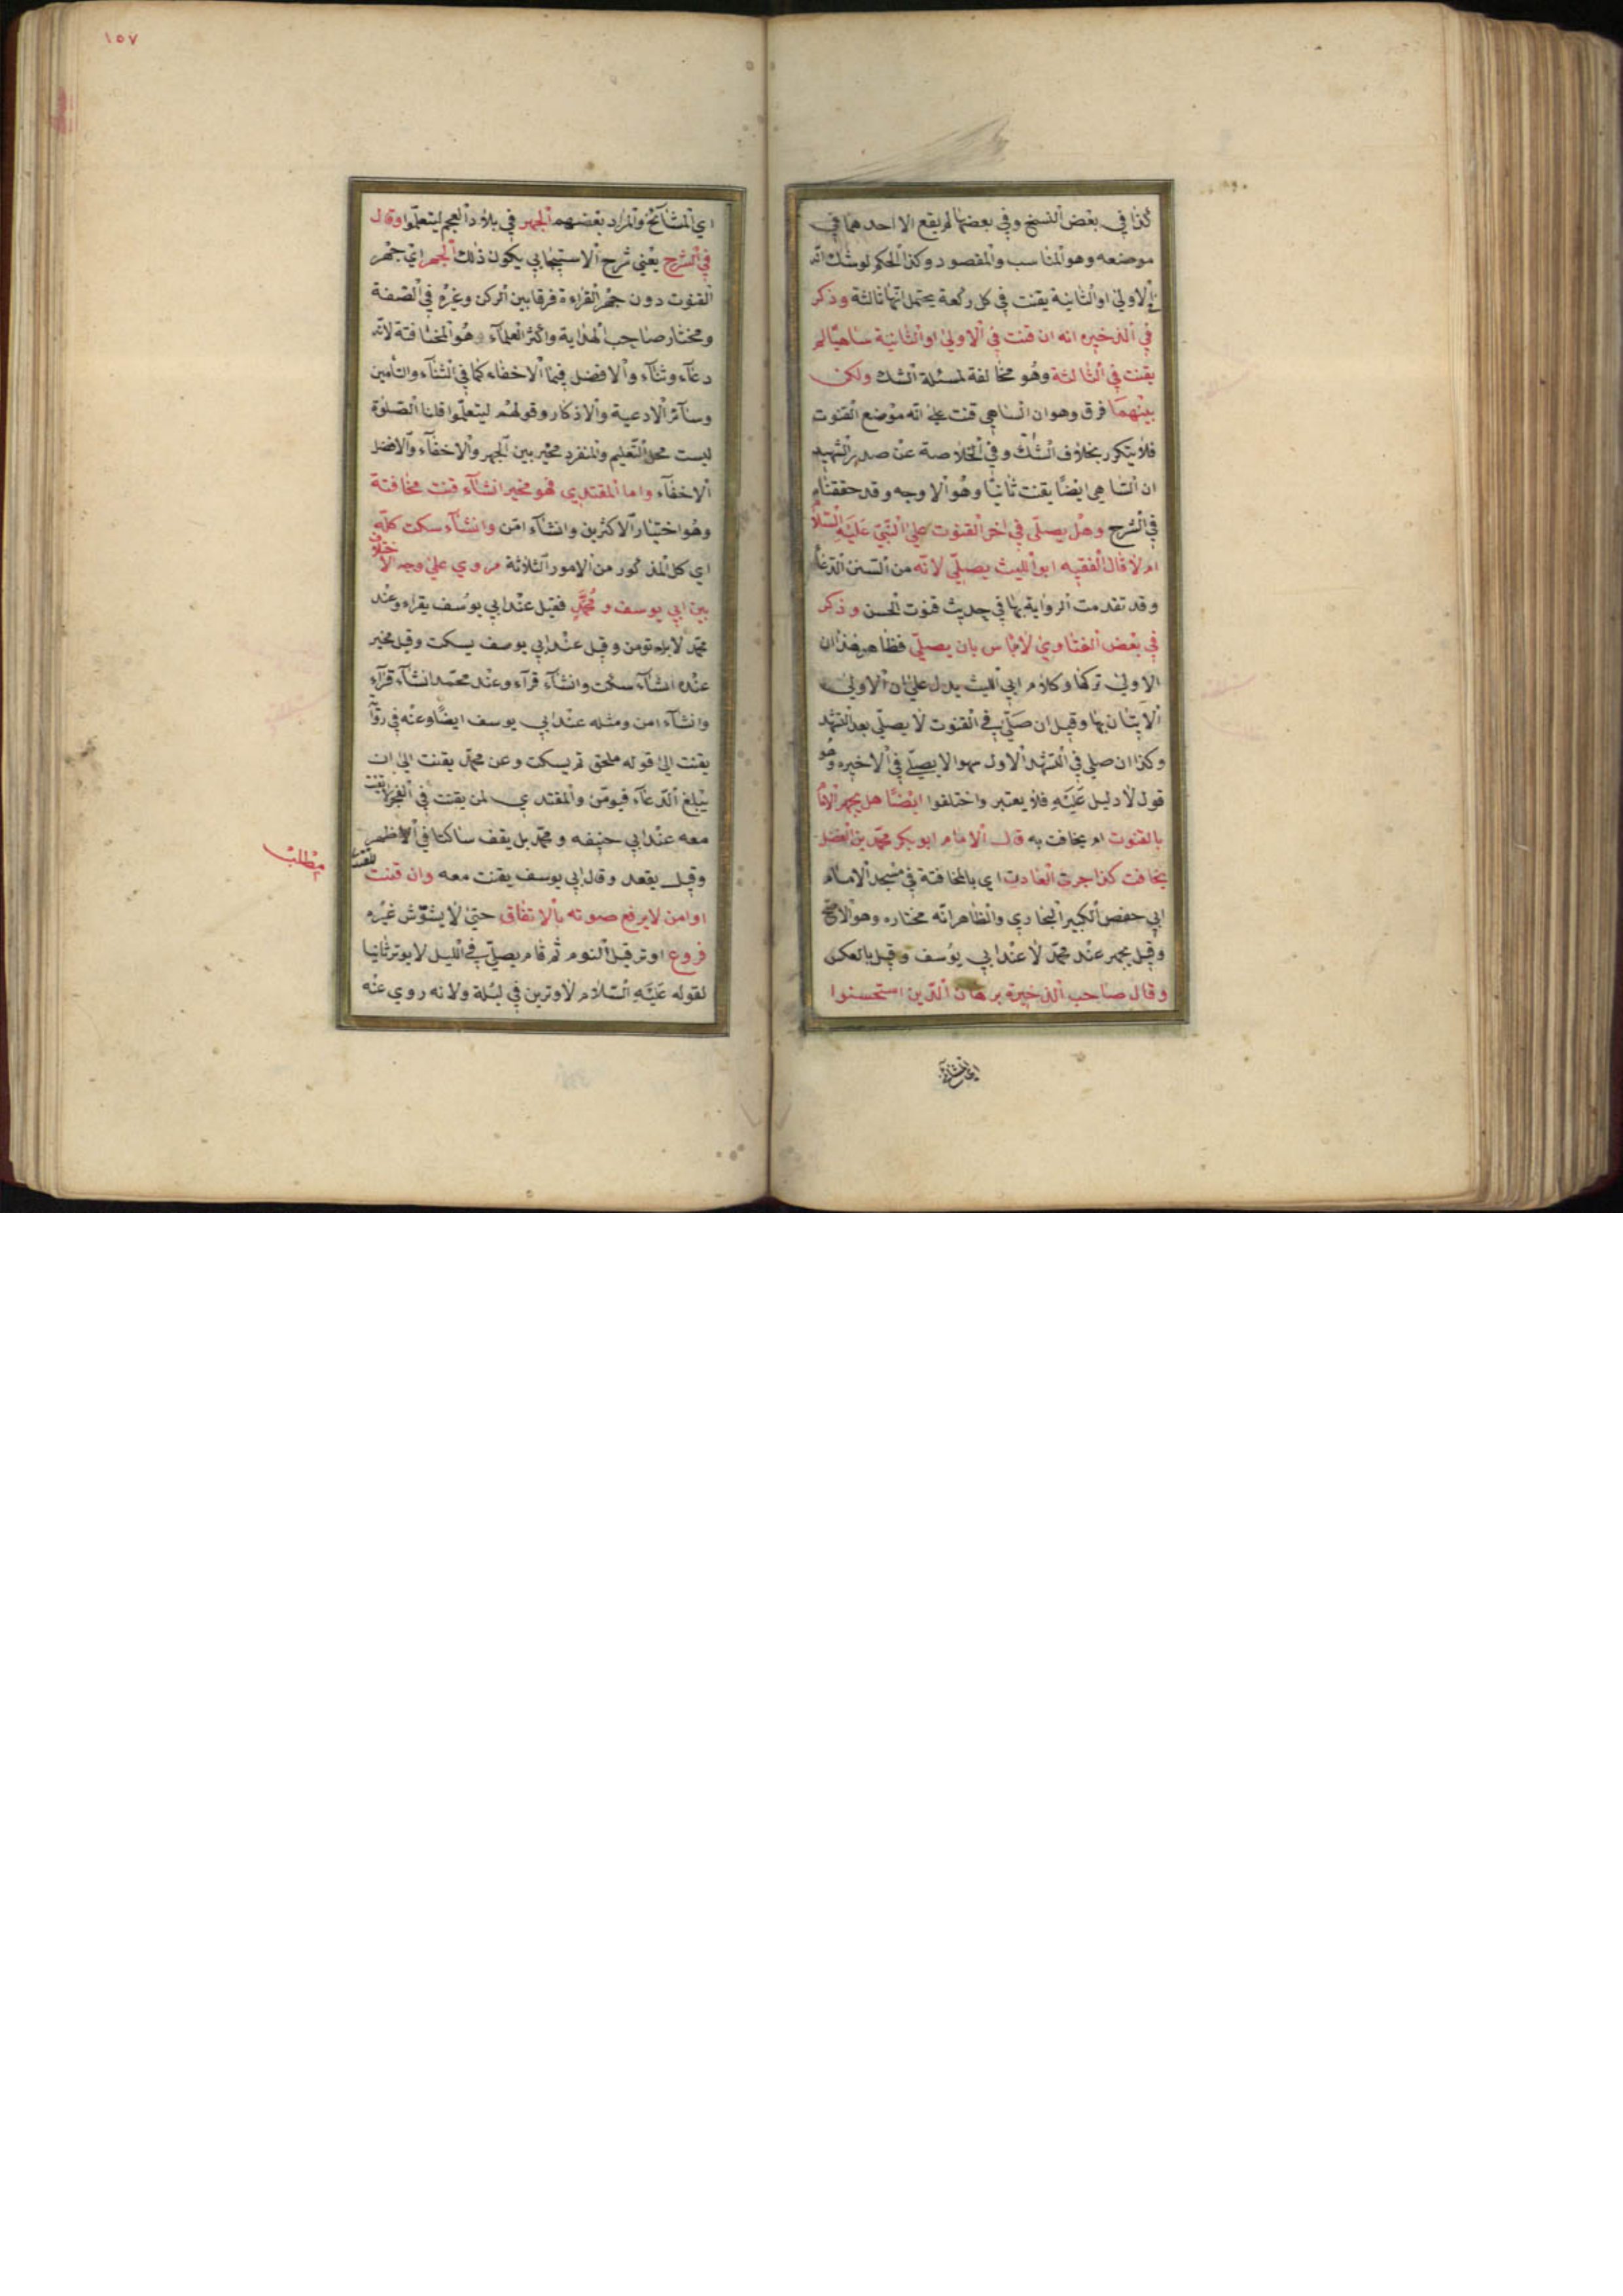 كذا في بعض النسخ وفي بعضها لم يقع الا احدهما في
موضعه وهو المناسب والمقصود وكذا الحكم لو شك انه
في الاولى او الثانية يقنت في كل ركعة يحتمل انها ثالثة وذكر
في الذخيره انه ان قنت في الاولى او الثانية ساهيا لم
يقنت في الثالثة وهو مخالفة لمسئلة الشك ولكن
بينهما فرق وهو ان الساهي قنت على انه موضع القنوت
فلا يتكرر بخلاف الشك وفي الخلاصة عن صدر الشهيد
ان الساهي ايضا يقنت ثانيا وهو الاوجه وقد حققناه
في الشرح وهل يصلي في اخر القنوت على النبي عليه السلام
ام لا قال الفقيه ابو الليث يصلي لانه من السنن الدعاء
وقد تقدمت الرواية بها في حديث قنوت الحسن وذكر
في بعض الفتاوي لا باس بان يصلي فظاهر هذا ان
الاولى تركها وكلام ابي الليث يدل على ان الاولى
الاتيان بها وقيل ان صلى في القنوت لا يصلي بعد التشهد
وكذا ان صلى في التشهد الاول سهوا لا يصلي في الاخيره وهو
قول لا دليل عليه فلا يعتبر واختلفوا ايضا هل يجهر الامام
بالقنوت ام يخافت به قال الامام ابو بكر محمد بن الفضل
يخافت كذا جرت العادت اي بالمخافتة في مسجد الامام
ابي حفص الكبير البخاري والظاهر انه مختاره وهو الاصح
وقيل يجهر عند محمد لا عند ابي يوسف وقيل بالعكس
وقال صاحب الذخيرة برهان الدين استحسنوا
اي المشائخ
١٥٧
اي المشآئخ والمراد بعضهم الجهر في بلاد العجم ليتعلموا وقال
في الشرح يعني شرح الاستيجابي يكون ذلك الجهر اي جهر
القنوت دون جهر القراءة فرقا بين الركن وغيره في الصفة
ومختار صاحب الهداية واكثر العلمآء وهو المخافتة لانه
دعآء وثنآء والافضل فيها الاخفاء كما في الثنآء والتأمين
وسآئر الادعية والاذكار وقولهم ليتعلموا قلنا الصلوة
ليست محل التعليم والمنفرد مخير بين الجهر والاخفآء والافضل
الاخفآء واما المقتدي فهو مخير ان شآء قنت مخافتة
وهو اختيار الاكثرين وان شآء امن وان شآء سكت كله
اي كل المذكور من الامور الثلاثة مروي على وجه الاختلاف
بين ابي يوسف و محمد فقيل عند ابي يوسف يقراء وعند
محمد لا بل يؤمن وقيل عند ابي يوسف يسكت وقيل مخير
عنده ان شآء سكت وان شآء قرآء وعند محمد ان شآء قرآء
وان شآء امن ومثله عند ابي يوسف ايضا وعنه في رواية
يقنت الى قوله ملحق ثم يسكت وعن محمد يقنت الى ان
يبلغ الدعآء فيؤمن والمقتدي لمن يقنت في الفجر لا يقنت
معه عند ابي حنيفه ومحمد بل يقف ساكتا في الاظهر
وقيل يقعد وقال ابي يوسف يقنت معه وان قنت
او امن لا يرفع صوته بالاتفاق حتى لا يشوش غيره
فروع اوتر قبل النوم ثم قام يصلي في الليل لا يوتر ثانيا
لقوله عليه السلام لا وترين في ليلة ولانه روي عنه
مطلب